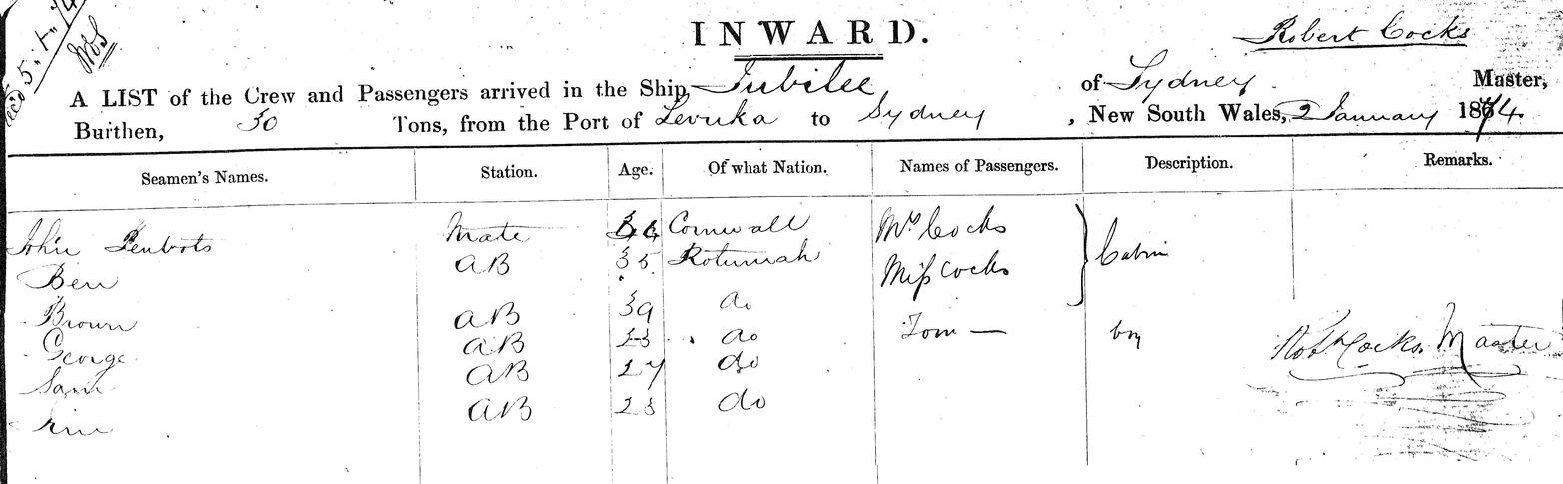 INWARD.
Robert Cocks
A LIST of the Crew and Passengers arrived in the Ship Jubilee of Sydney Master,
Burthen, 30 Tons, from the Port of Levuka to Sydney, New South Wales, 2 January 1874.
Seamen's Names. Station. Age. Of what Nation. Names of Passengers. Description. Remarks.
John Mate Cornwall Mrs Cocks Cabin
Ben AB 35 Rotumah Miss Cocks
Brown AB 39 do
George AB do Tom — boy Robt Cocks. Master
Sam AB 27 do
AB do